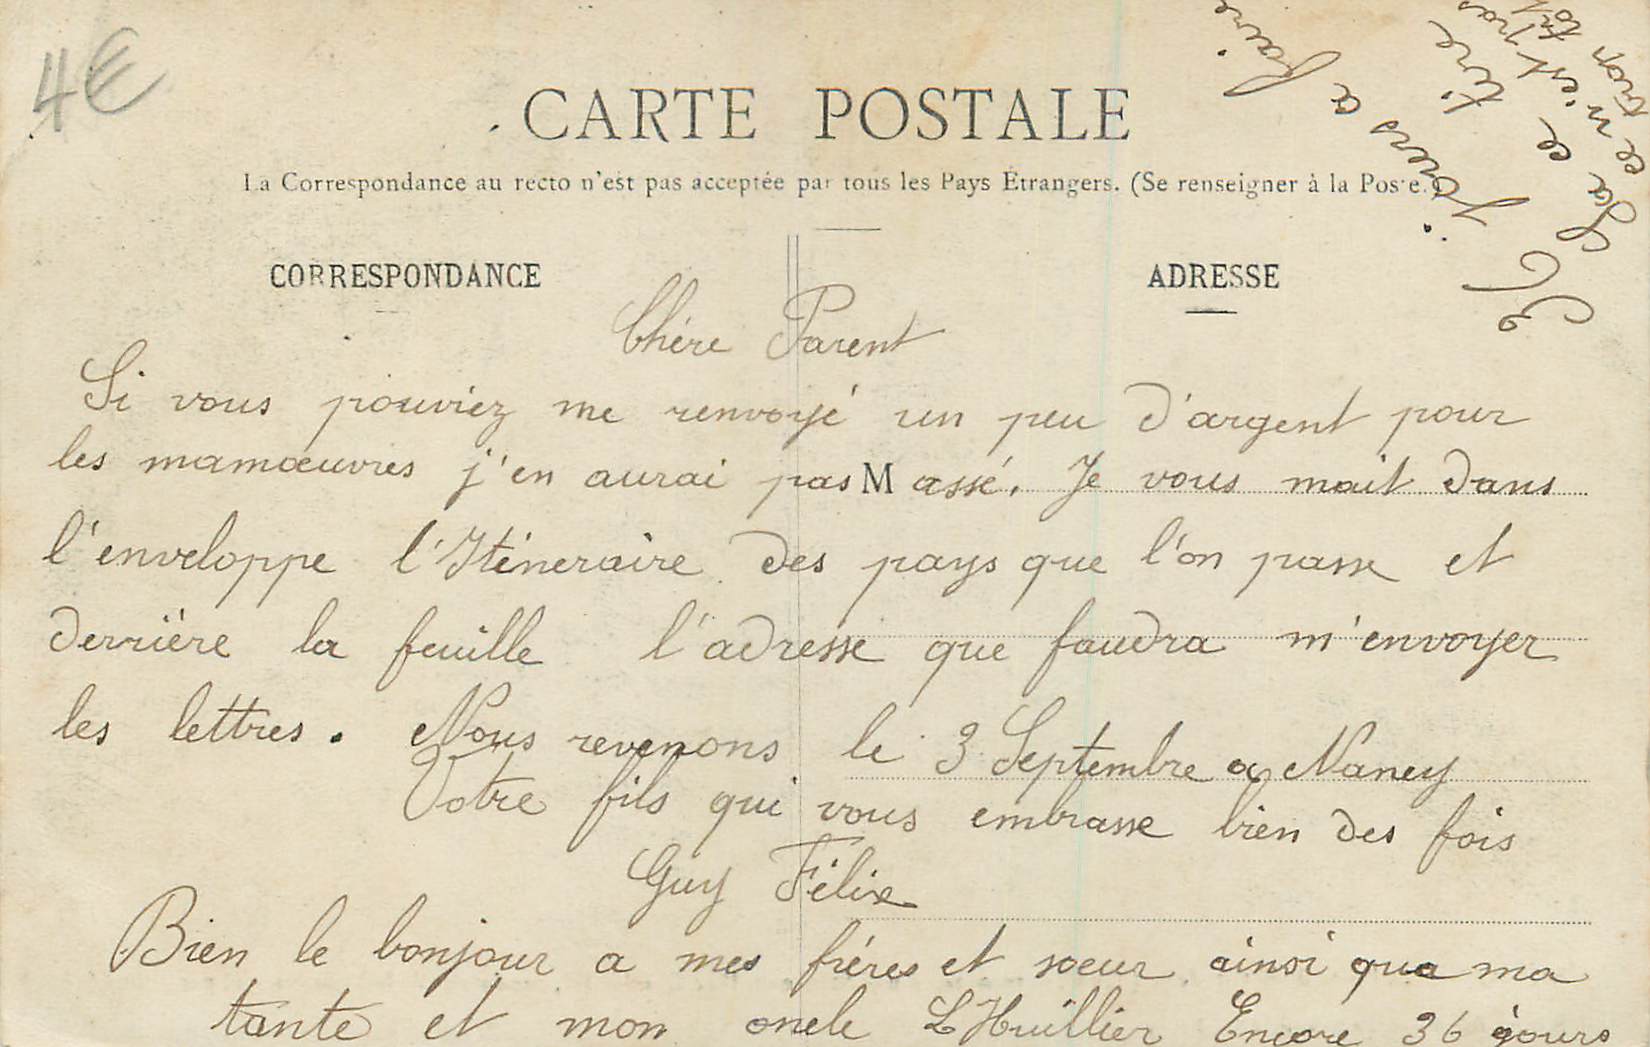 4€
CARTE POSTALE
La Correspondance au recto n'est pas acceptée par tous les Pays Étrangers. (Se renseigner à la Poste.)
CORRESPONDANCE
ADRESSE
Chére Parent
Si vous pouviez me renvoyé un peu d'argent pour
les mamœuvres j'en aurai pas M assé. Je vous mait dans
l'enveloppe l'Itineraire des pays que l'on passe et
derriére la feuille l'adresse que faudra m'envoyer
les lettres. Nous revenons le 3 Septembre a Nancy
Votre fils qui vous embrasse bien des fois
Guy Félix
Bien le bonjour a mes fréres et sœur ainsi qua ma
tante et mon oncle L'Huillier Encore 36 jours
36 jours a faire
Sa ce tire
ce n'est